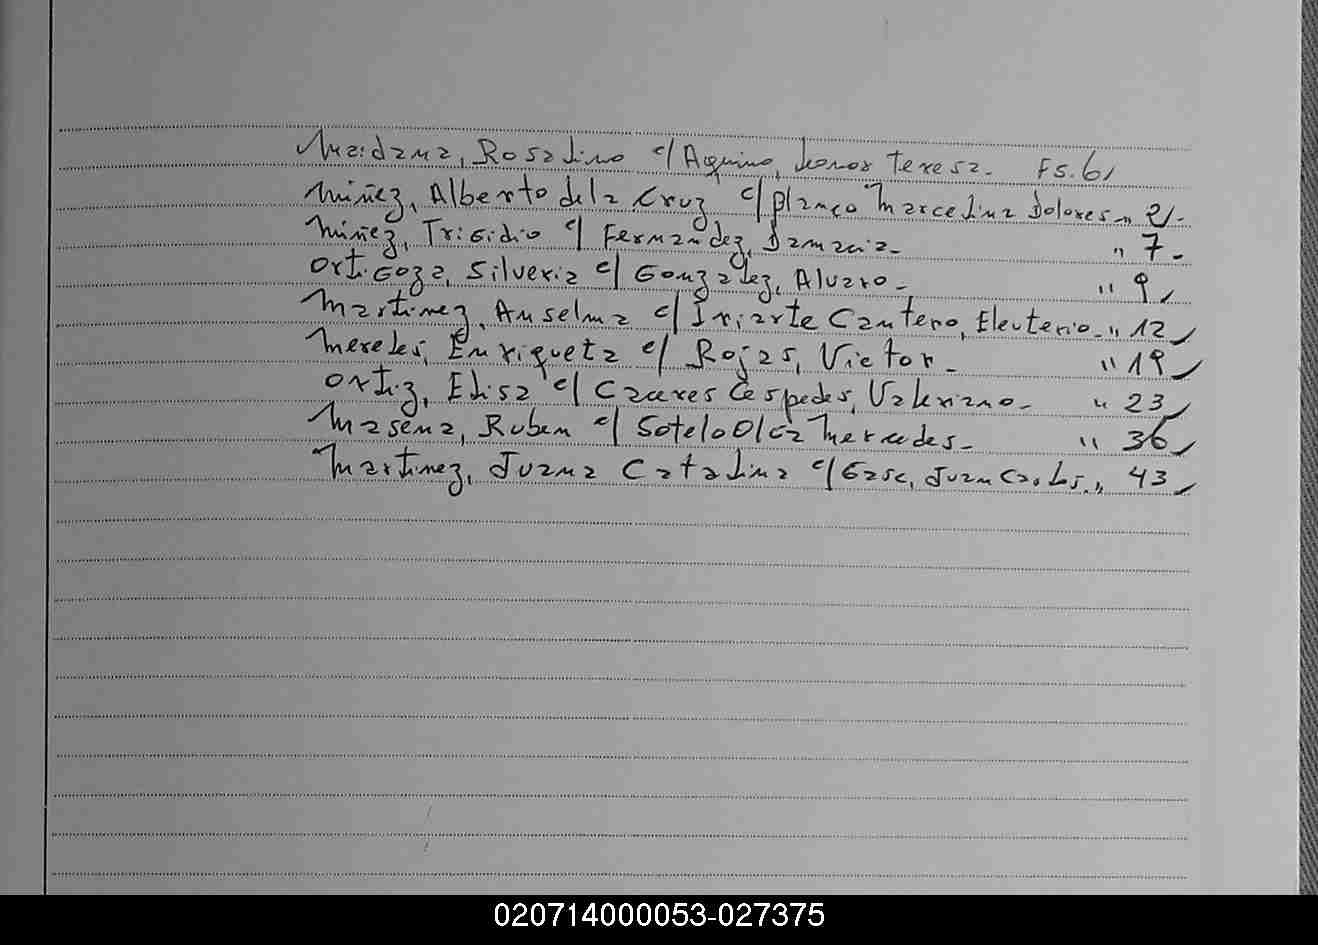 Maidana, Rosalino c/ Aquino, Leonor teresa. Fs. 61
Miñez, Alberto dela Cruz c/ Planço Marcelina Dolores " 2/-
Miñez, Trisidio c/ Fernandez, Damacia- " 7-
Ortigoza, Silveria c/ Gonzalez, Alvaro- " 9/
Martinez, Anselma c/ Iriarte Cantero, Eleuterio-" 12/
Mereles, Enriqueta c/ Rojas, Victor- " 19/
Ortiz, Elisa c/ Caceres Cespedes, Valeriano- " 23/
Masena, Ruben c/ Sotelo Mercedes- " 36/
Martinez, Juana Catalina c/ Juan Carlos." 43/
020714000053-027375